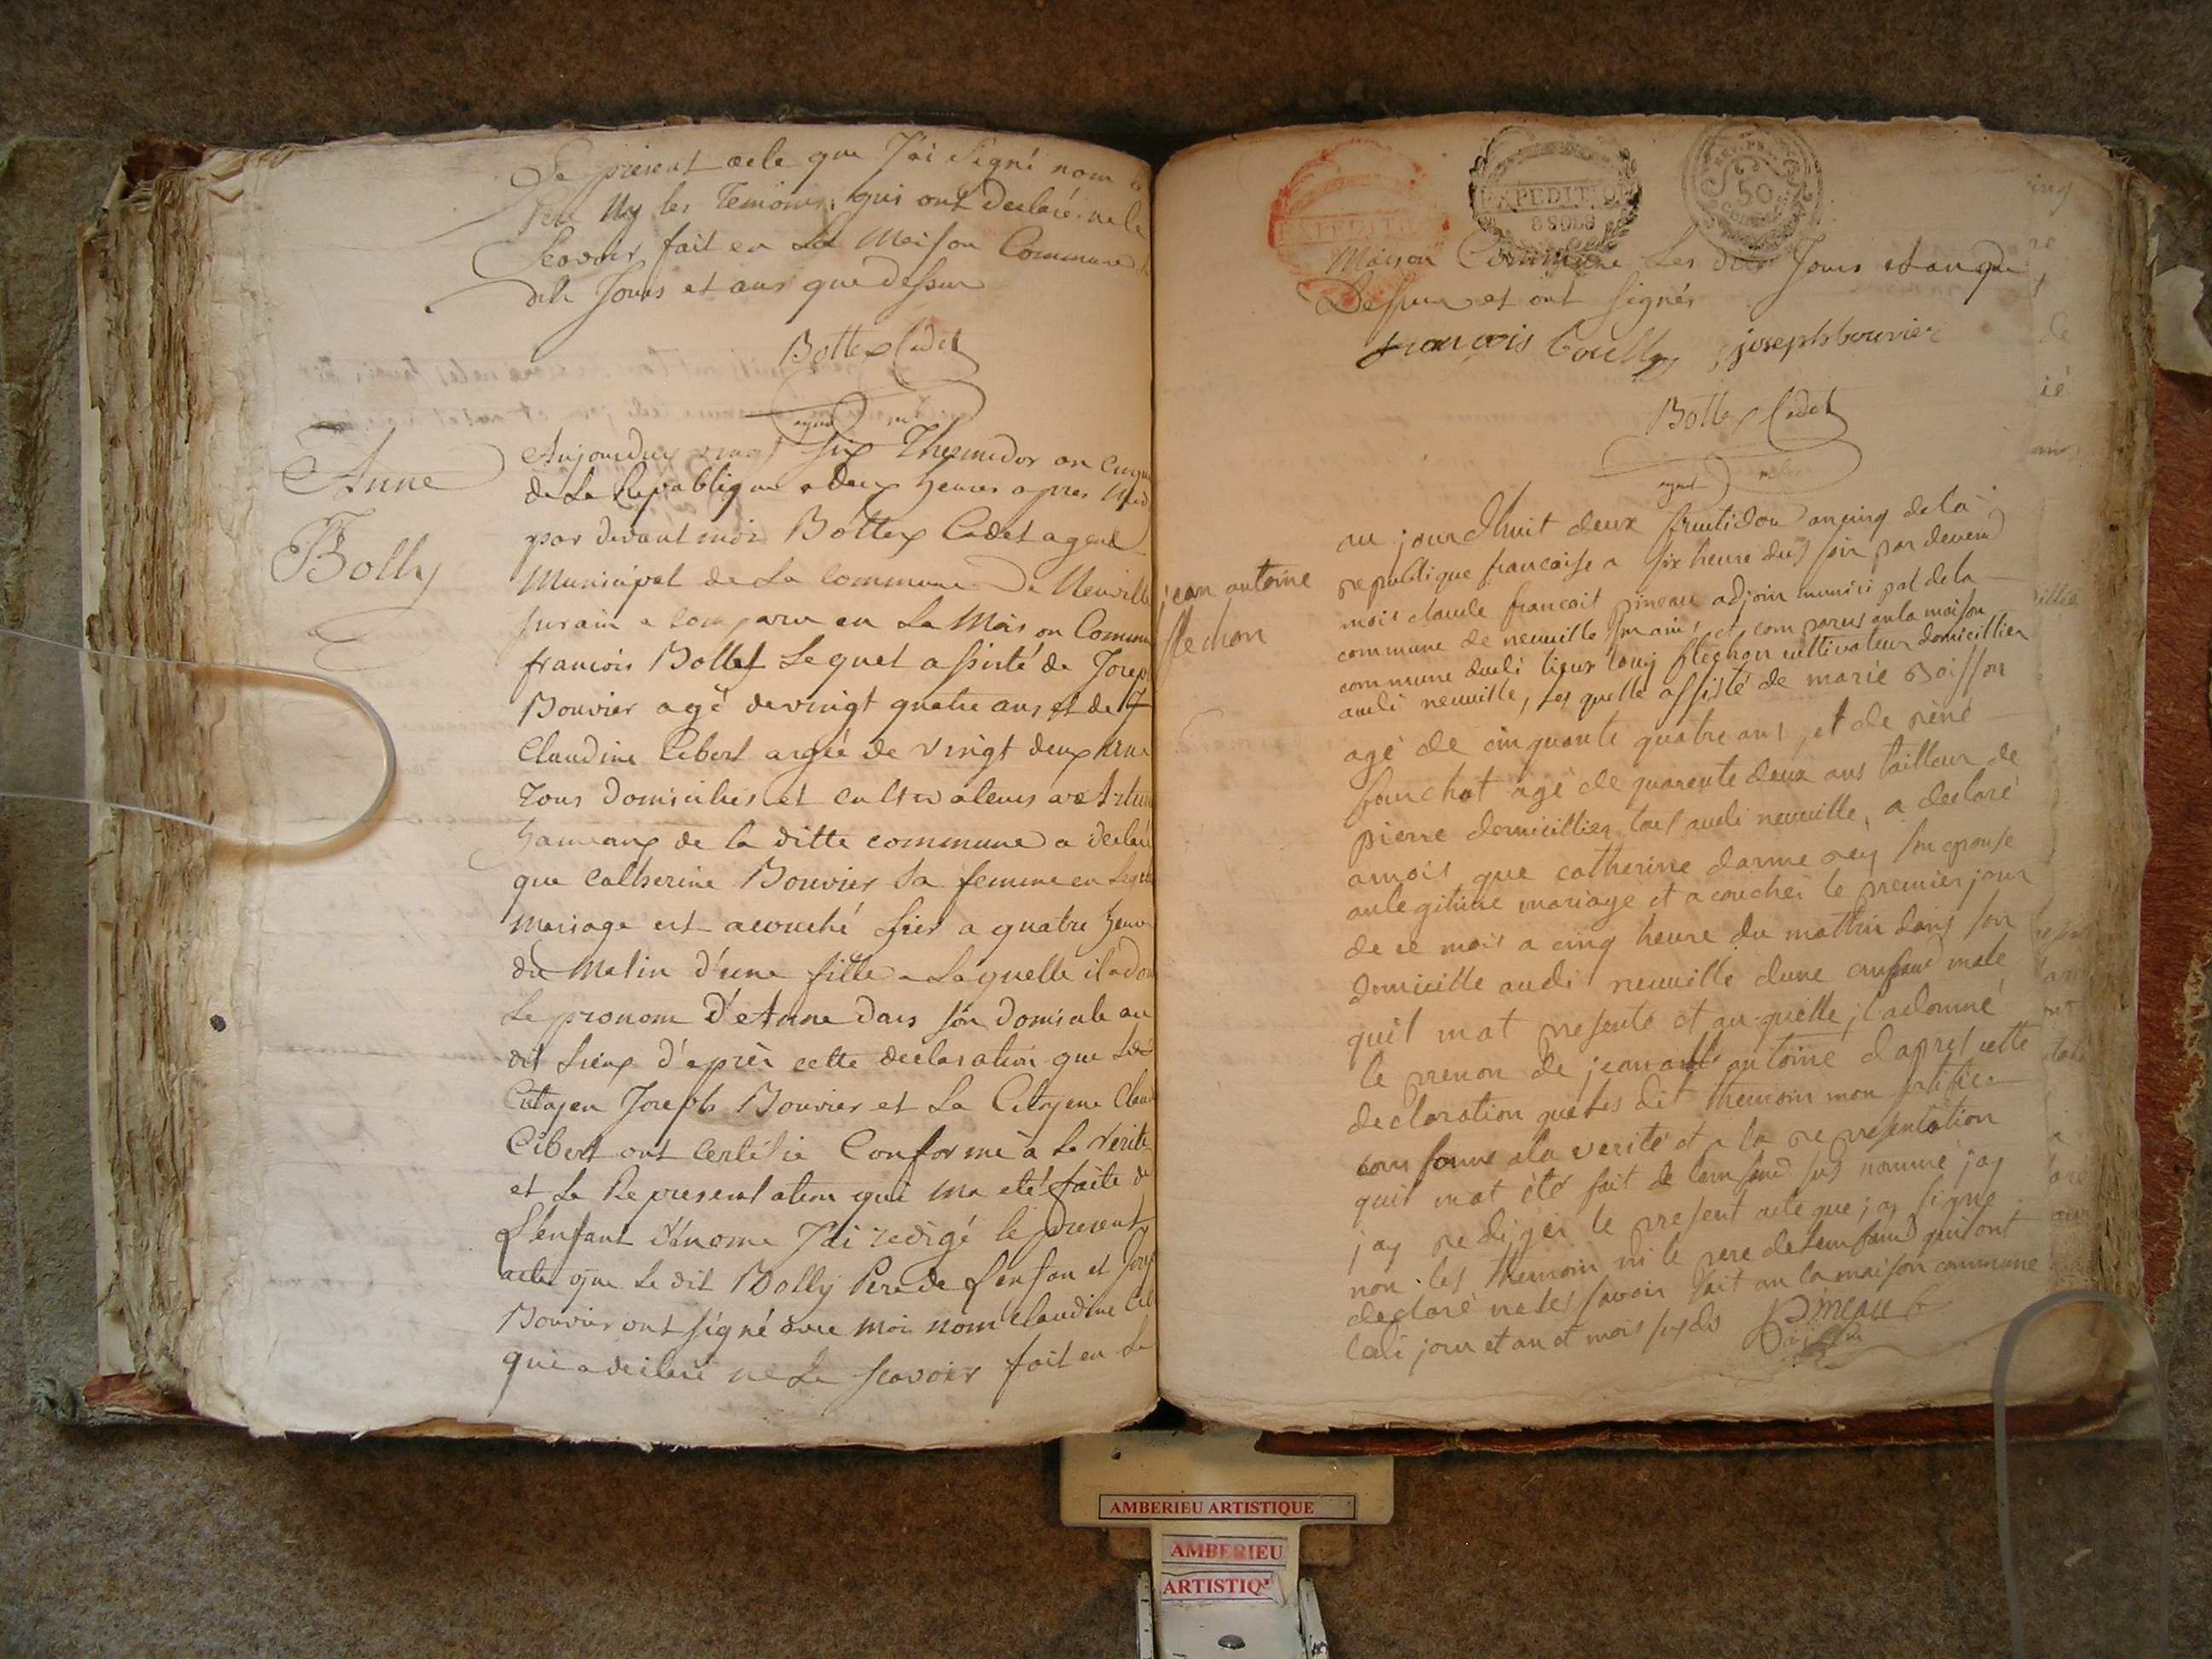 Le present acte que J'ai Signé nom a
Ny les Temoins, qui ont declarés ne le
Scavoir fait en La Maison Commune
dits Jours et ans que dessus
Bottex Cadet
agent
Anne
Bolly
Aujourduy vingt six Thermidor an cinq
de La Republique a deux heures apres Mid
par devant moi Bottex Cadet agent
Municipal de La Commune De Neuville
Surain a comparu en La Maison Commun
francois Bollet Lequel assisté de Josep
Bouvier agé devingt quatre ans et de
Claudine Cibert argée de vingt deux
Tous domiciliés et cultivateurs
hameaux de la ditte commune a declaré
que Catherine Bouvier Sa femme en Legit
Mariage est acouché hier a quatre heur
du Matin d'une fille a Laquelle il a do
Le pronom d'Anne dans son domicile au
dit Lieux d'après cette declaration que Le
Citoyen Joseph Bouvier et La Citoyene Claud
Cibert ont Certifié Conforme à La Verité
et La Representation qui ma eté faite de
L'enfant dénomé J'ai redigé le present
acte que Le dit Bolly Pere de L'enfan et Jos
Bouvier ont signé avec moi nom Claudine Cib
qui a declaré ne Le scavoir fait en La
EXPEDITION
EXPEDITION
8 SOLS
50
Maison Commune Les dits Jours et an que
Dessus et ont signés
francois bolly josephbouvier
Bottex Cadet
agent
jean antoine
flechon
au jourdhuit deux fruitidor an cinq de la
republique francoise a six heure dus soir par devend
mois claude francoit pineau adjoin munici pal de la
commune de neuville sur ains, et com parus an la maison
commune dudi lieux flechon cultivateur domicillier
audi neuville, les quelle assisté de marie Boisson
agé de cinquante quatre ans, et de réné
fouchat agé de quarente deux ans tailleur de
pierre domicillier tout audi neuville, a declaré
amois que catherine darmerey sur epouse
an legitime mariage et acouchér le premier jour
de ce mois a cinq heure du mattin dans son
domicille audi neuville dune enfand male
quil mat presenté et au quelle jl adonné
le prenon de jean antoine dapret cette
declaration que les dit themoin mon sertifiez
com forme ala verité et a la representation
quil mat été fait de lamfand sus nommé jay
jay rediger le present acte que jay signe
non les themoin ni le pere delamfand qui ont
declaré nales savoir fait an la maison commune
ledi jour et an et mois susdis pineau
AMBERIEU ARTISTIQUE
AMBERIEU
ARTISTIQ